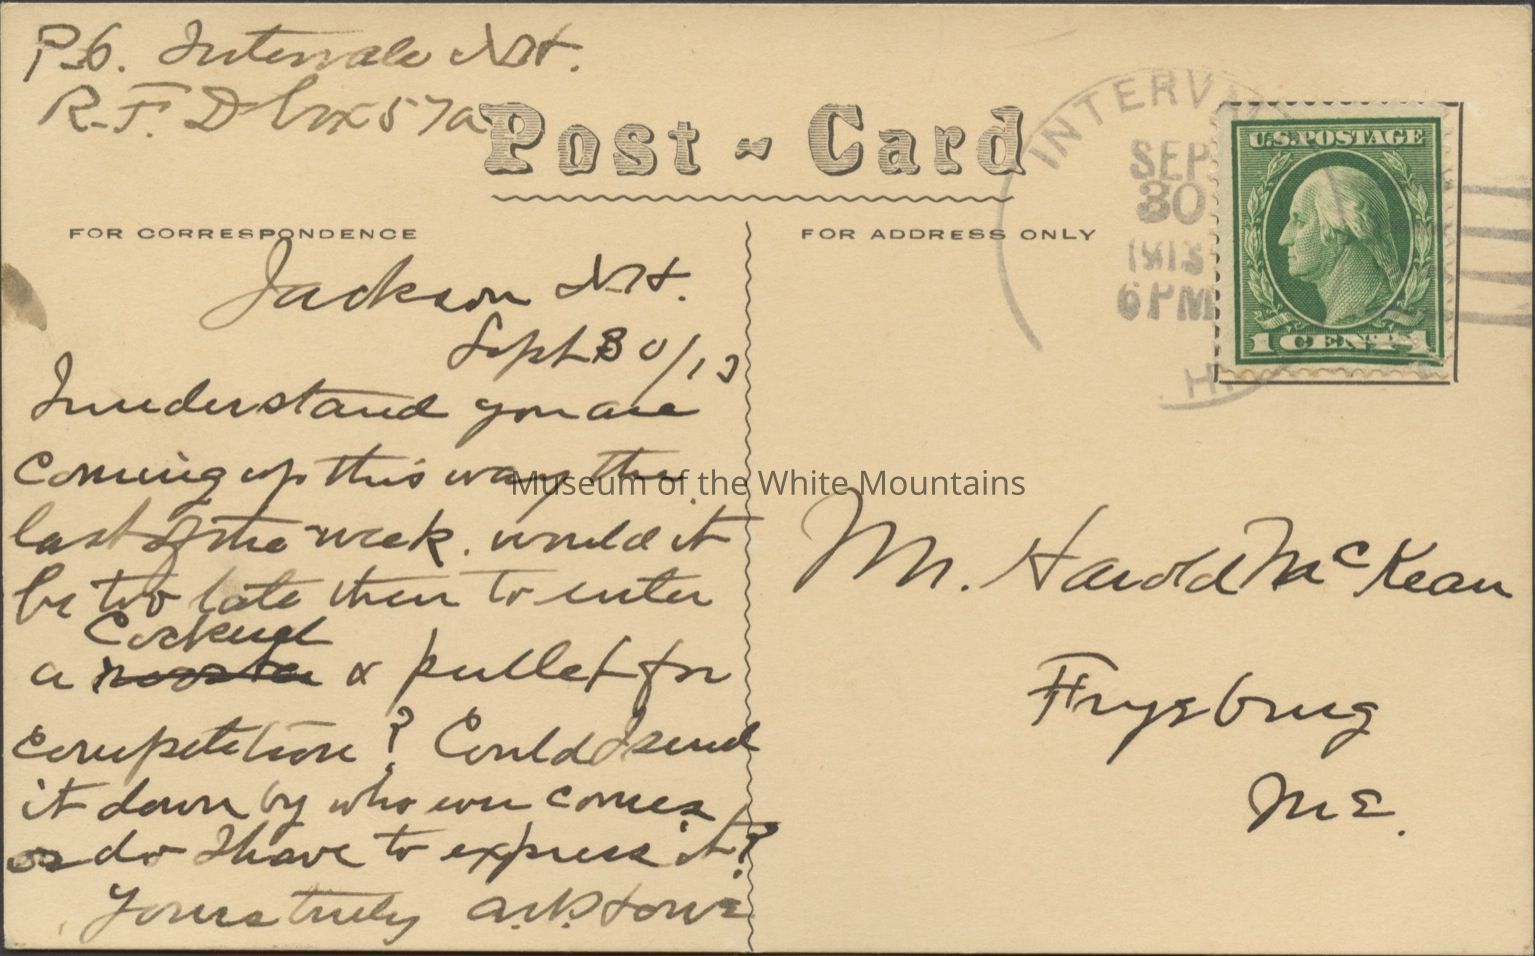 P.O. Intervale N.H.
R.F.D box 57a
Post ~ Card
INTERVALE
SEP
30
1913
6 PM
H
U.S. POSTAGE
1 CENT 1
FOR CORRESPONDENCE
FOR ADDRESS ONLY
Jackson N.H.
Sept 30/13
I understand you are
coming up this way the
last of the week. would it
be too late then to enter
Cockerel
a rooster & pullet for
competition? Could I send
it down by who ever comes
or do I have to express it?
Yours truly
Museum of the White Mountains
Mr. Harold McKean
Fryeburg
ME.